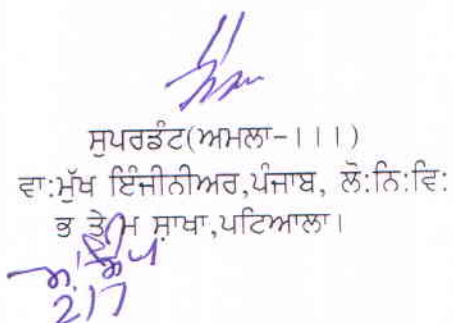 ਸੁਪਰਡੰਟ(ਅਮਲਾ-।।।)
ਵਾ:ਮੁੱਖ ਇੰਜੀਨੀਅਰ,ਪੰਜਾਬ, ਲੋ:ਨਿ:ਵਿ:
ਭ ਤੇ ਮ ਸ਼ਾਖਾ,ਪਟਿਆਲਾ।
2/7